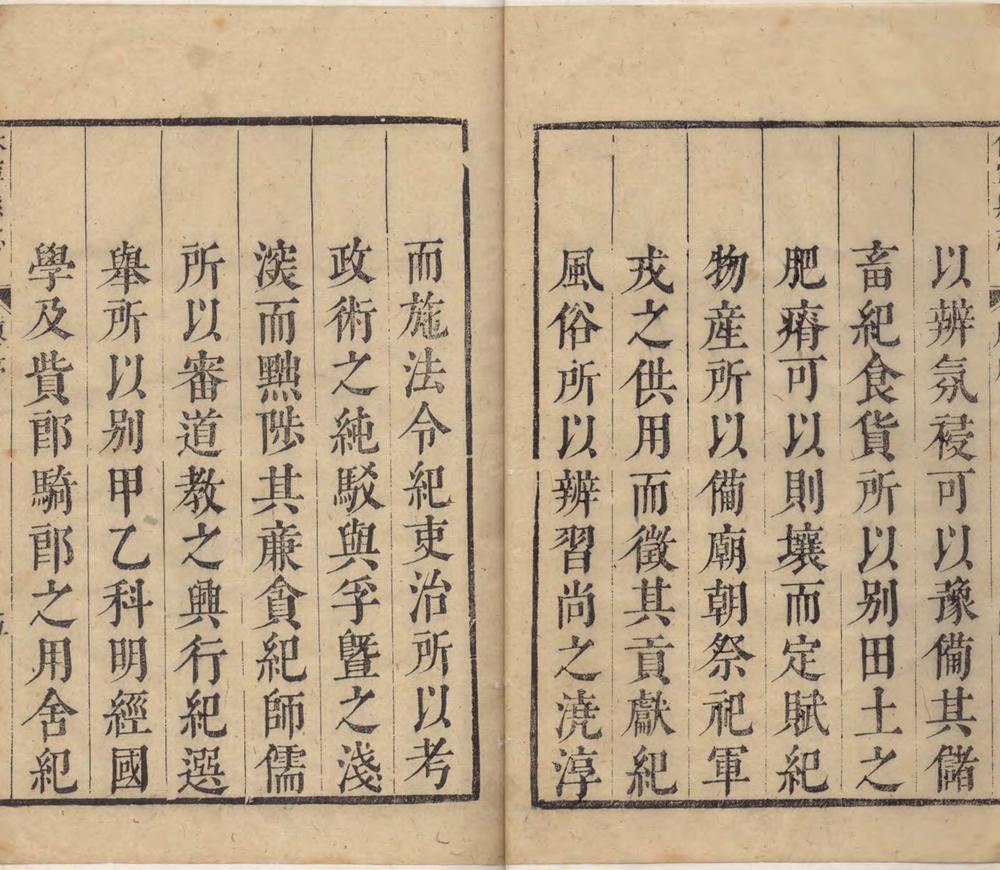 以辨氛祲可以豫備其儲
畜紀食貨所以别田土之
肥瘠可以則壤而定賦紀
物産所以備廟朝祭祀軍
戎之供用而徵其貢獻紀
風俗所以辨習尚之澆淳
而施法令紀吏治所以考
政術之純駁與孚暨之淺
深而黜陟其廉貪紀師儒
所以審道教之興行紀選
舉所以别甲乙科明經國
學及貲郎騎郎之用舍紀